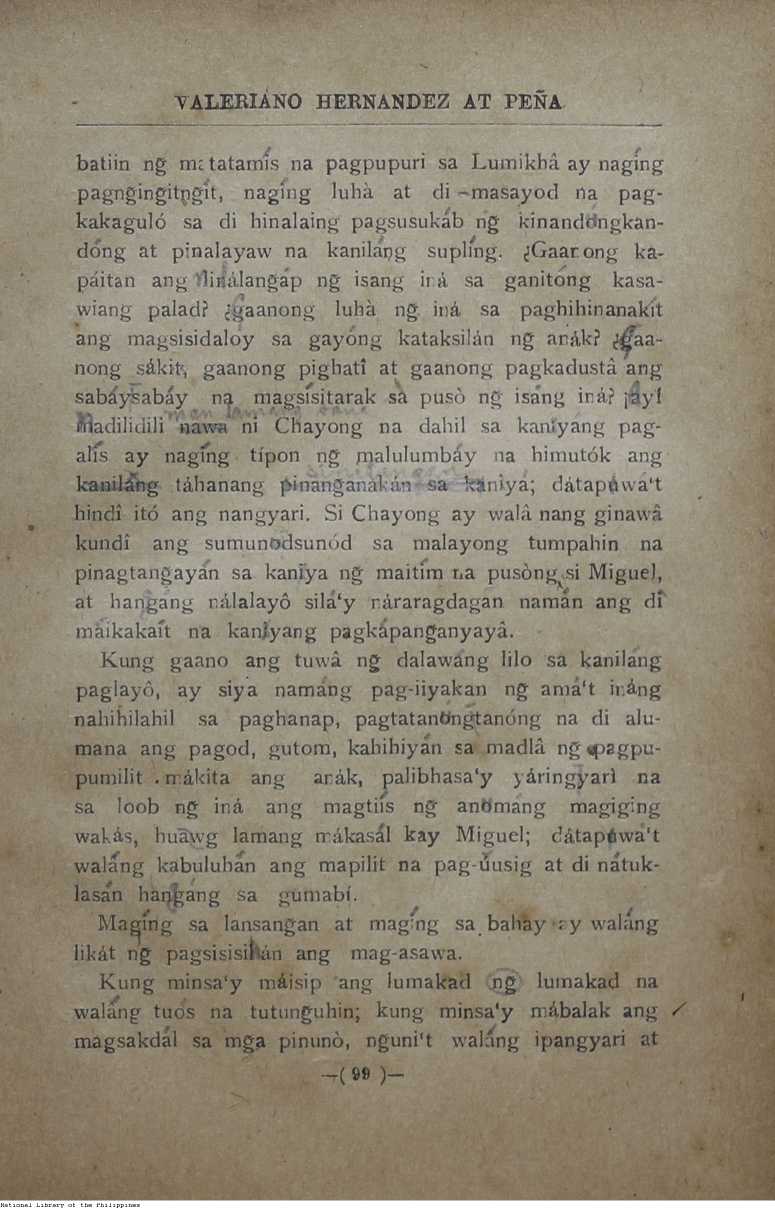 VALERIANO HERNANDEZ AT PEÑA
batiin ng̃ matatamis na pagpupuri sa Lumikhâ ay nagíng
pagng̃ing̃itng̃ít, nagíng luhà at di masayod na pag-
kakaguló sa di hinalaing pagsusukáb ng̃ kinandóngkan-
dóng at pinalayaw na kaniláng suplíng. ¿Gaanong ka-
páitan ang linálang̃ap ng̃ isang iná sa ganitóng kasa-
wiang palad? ¿gaanong luhà ng̃ iná sa paghihinanakít
ang magsisidaloy sa gayóng kataksilán ng̃ anák? ¿gaa-
nong sákit, gaanong pighatî at gaanong pagkadustâ ang
sabáysabáy na magsísitarak sà pusò ng̃ isáng iná? ¡ay!
Madilidili nawa ni Chayong na dahil sa kaniyang pag-
alís ay nagíng típon ng̃ malulumbáy na himutók ang
kaniláng táhanang pinang̃anakán sa kaniyá; dátapúwá't
hindî itó ang nangyari. Si Chayong ay walâ nang ginawâ
kundî ang sumunodsunód sa malayong tumpahin na
pinagtang̃ayán sa kaniya ng̃ maitím na pusòng si Miguel,
at hang̃gáng nálalayô silá'y náraragdagan namán ang dî
máikakaít na kaniyang pagkápang̃anyayâ.
Kung gaano ang tuwâ ng̃ dalawáng lilo sa kaniláng
paglayô, ay siya namáng pag-iiyakan ng̃ amá't ináng
nahihilahil sa paghanap, pagtatanóngtanóng na di alu-
mana ang pagod, gutom, kahihiyán sa madlâ ng̃ pagpu-
pumilit mákita ang anák, palibhasa'y yáringyarì na
sa loob ng̃ iná ang magtiís ng̃ anómáng magiging
wakás, huwag lamang mákasál kay Miguel; dátapúwá't
waláng kabuluhán ang mapilit na pag-úusig at di nátuk-
lasán hang̃gáng sa gumabí.
Magíng sa lansang̃an at magíng sa bahay ay waláng
likát ng̃ pagsisisihán ang mag-asawa.
Kung minsa'y máisip ang lumakad ng̃ lumakad na
waláng tuós na tutung̃uhin; kung minsa'y mábalak ang
magsakdál sa mg̃a pinunò, ng̃uni't waláng ipangyari at
—( 99 )—
National Library of the Philippines